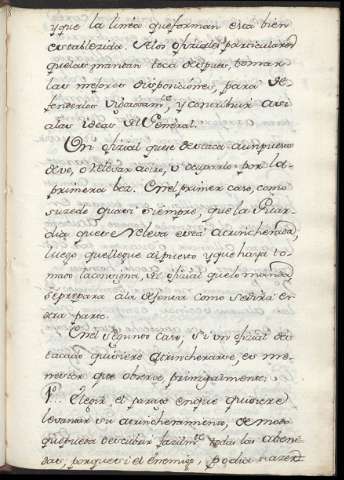 y que la linea que forman està bien
establecida. A los oficiales particulares
que las mandan toca despues, tomar
las mejores disposiciones, para de
fenderlos vigorosam.te y contribuir asi
a las ideas del General.
Un oficial que se destaca a un puesto
debe, o relevar a otro, u ocuparlo por la
primera vez. En el primer caso, como
sucede quasi siempre, que la Guar
dia que se releva está atrincherada,
luego que llegue al puesto y que haya to
mado la consigna, el oficial que lo manda,
se prepara a la defensa como se dirá en
otra parte.
En el segundo caso, si un oficial des
tacado quisiere atrincherarse, es me
nester que observe, principalmente.
1º. Elegir el parage en que quisiere
levantar su atrincheramiento, de modo
que pueda descubrir facilm.te todas las abeni
das, porque si el enemigo, podia hazer